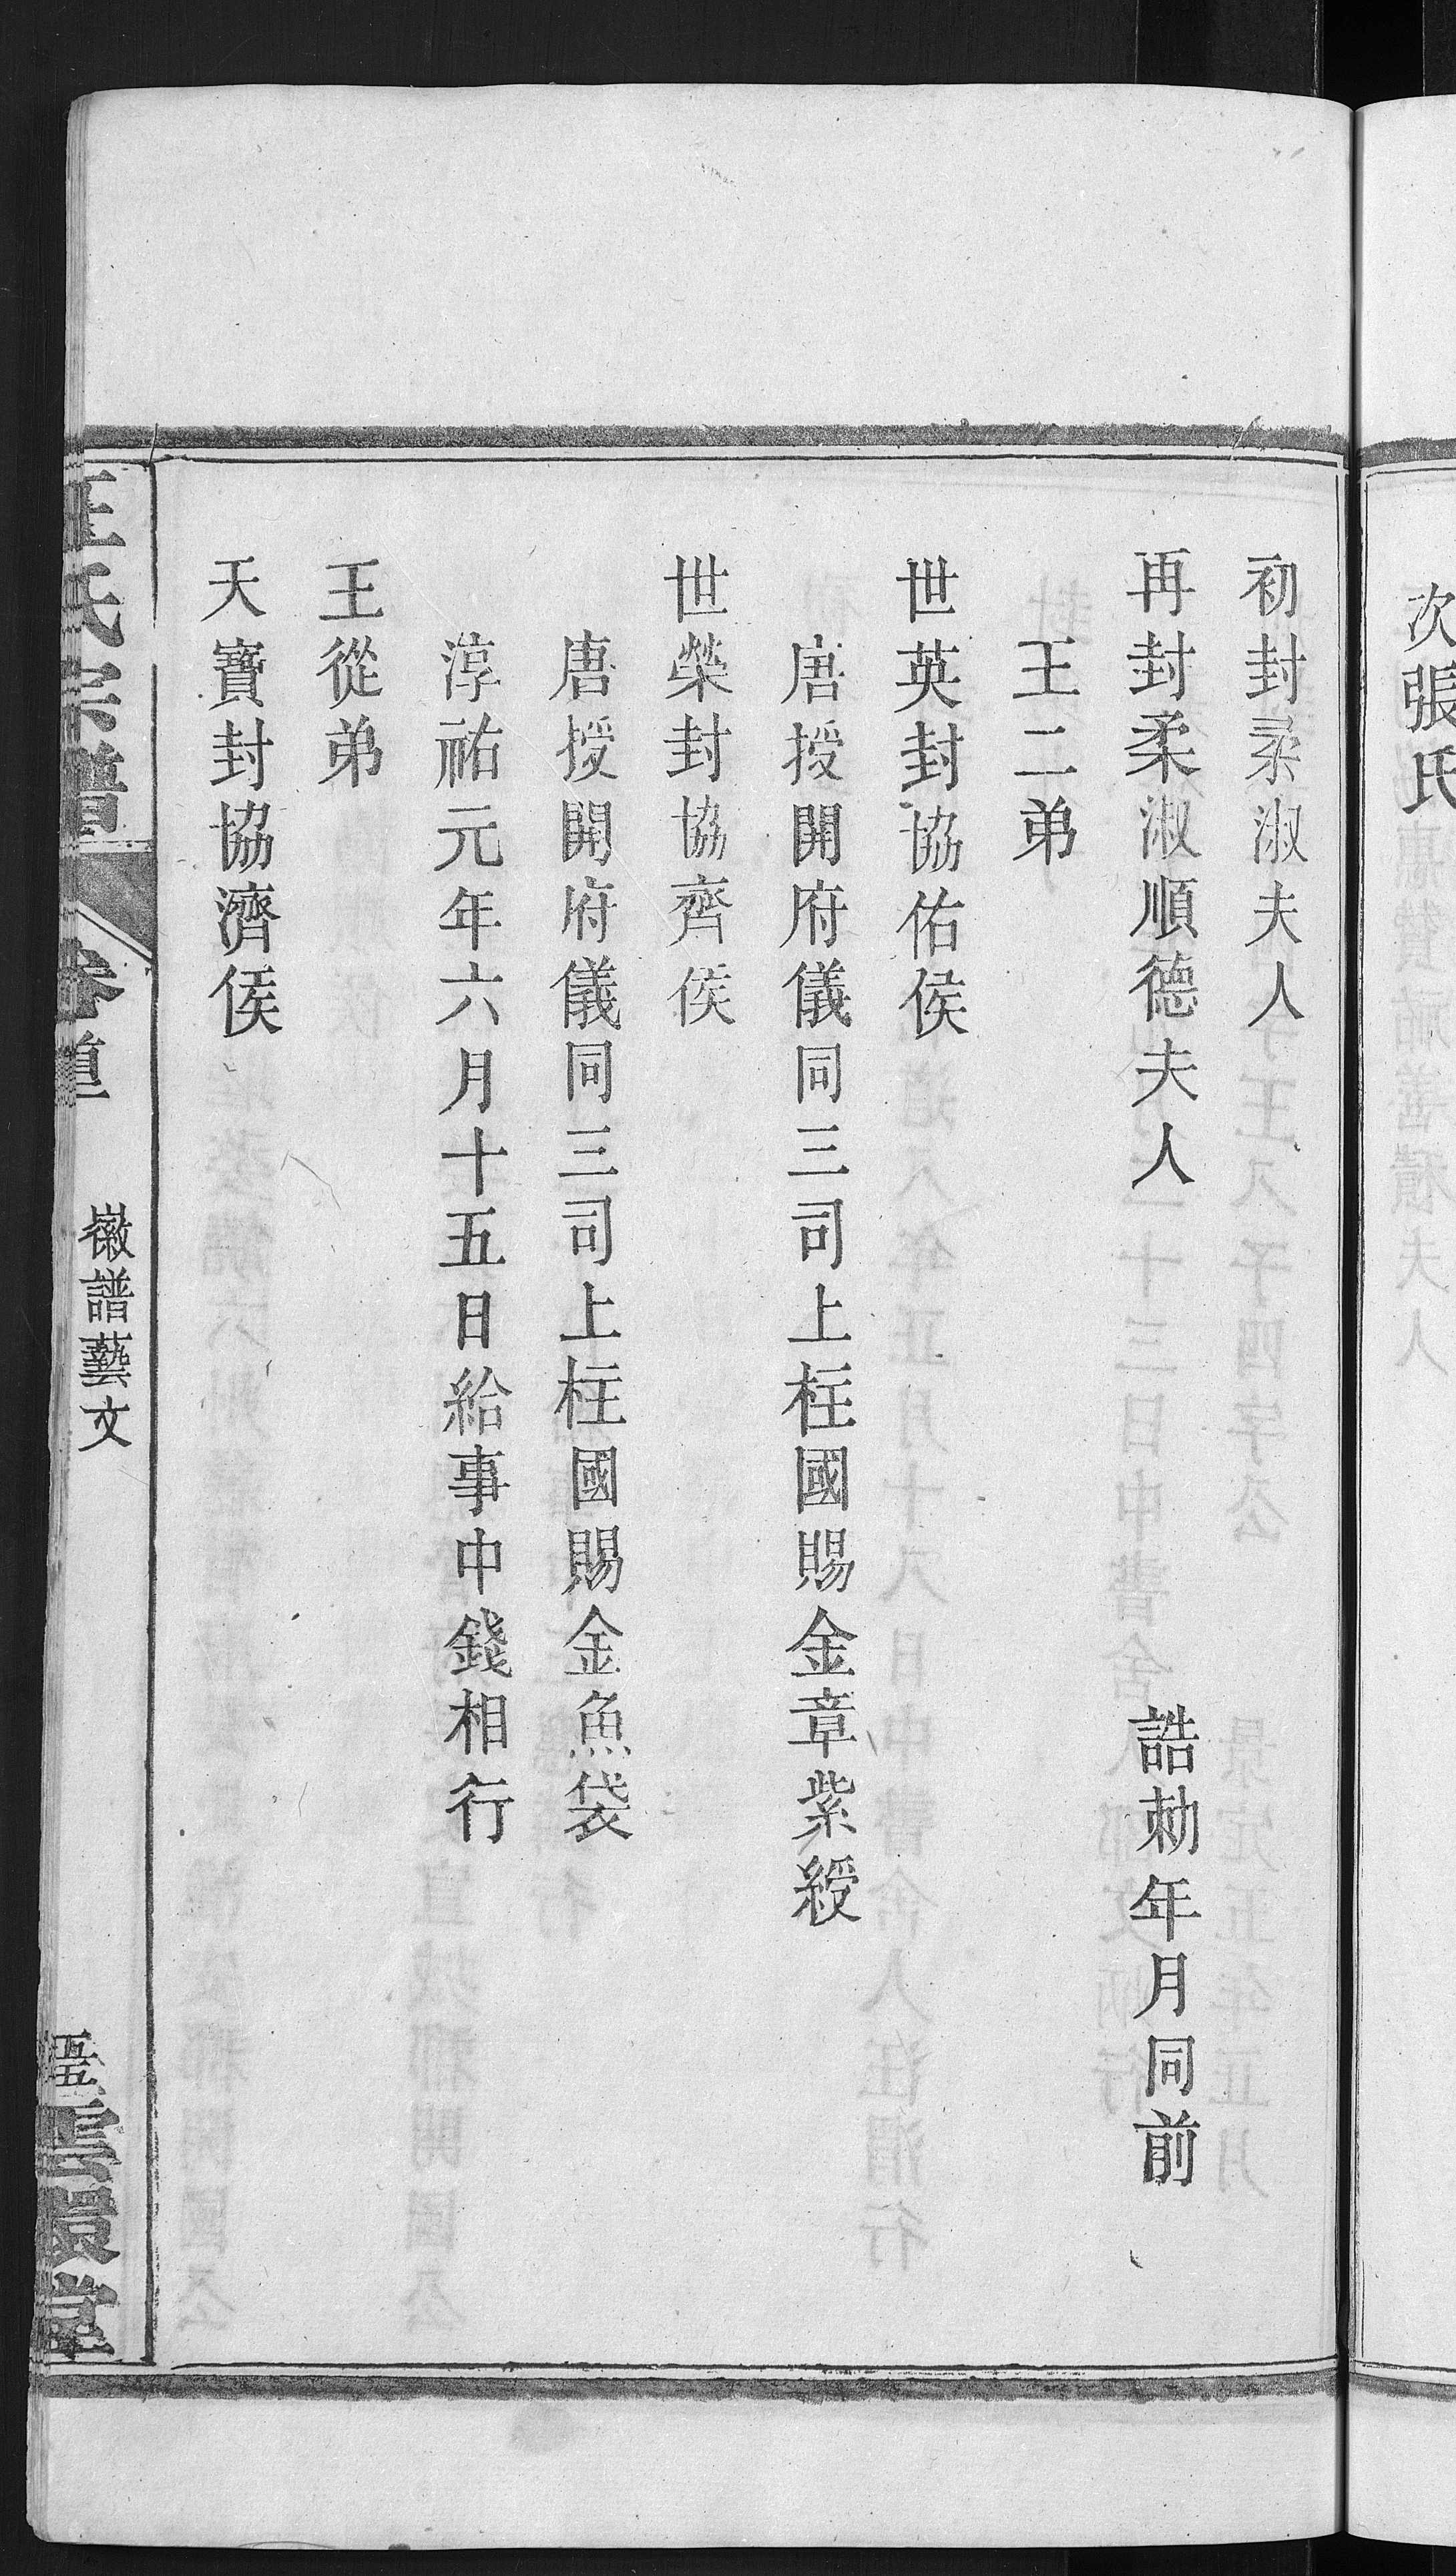 次張氏
初封柔淑夫人
再封柔淑順德夫人 誥勅年月同前
王二弟
世英封協佑侯
唐授開府儀同三司上柱國賜金章紫綬
世榮封協齊侯
唐授開府儀同三司上柱國賜金魚袋
淳祐元年六月十五日給事中錢相行
王從弟
天寶封協濟侯
汪氏宗譜 卷首 徽譜藝文